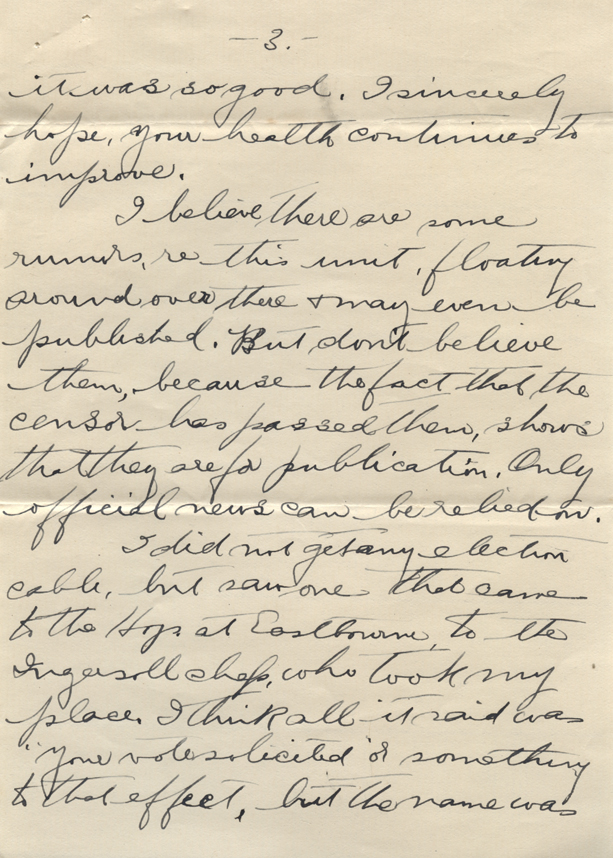 -3.-
it was so good. I sincerely
hope, your health continues to
improve.
I believe there are some
rumors, re this unit, floating
around over there & may even be
published. But don't believe
them, because the fact that the
censor has passed them, shows
that they are for publication. Only
official news can be relied on.
I did not get any election
cable, but saw one that came
to the Hosp. at Eastbourne, to the
Ingersoll chap, who took my
place. I think all it said was
"Your vote solicited" or something
to that effect, but the name was